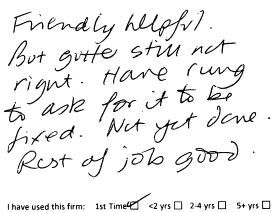 Friendly helpful.
But gutte still not
right. Have rung
to ask for it to be
fixed. Not yet done.
Rest of job good.
I have used this firm: 1st Time ☑ <2 yrs ☐ 2-4 yrs ☐ 5+ yrs ☐